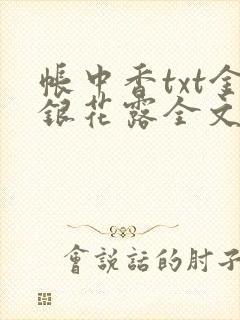 帳中香txt金
銀花露全文
會說話的肘子